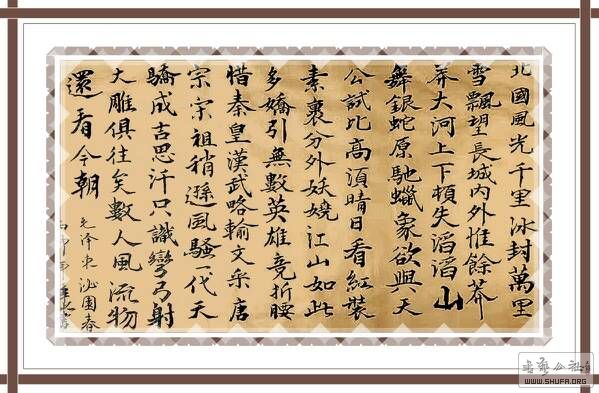 北國風光千里冰封萬里
雪飄望長城內外惟餘莽
莽大河上下頓失滔滔山
舞銀蛇原馳蠟象欲與天
公試比高須晴日看紅裝
素裹分外妖嬈江山如此
多嬌引無數英雄竞折腰
惜秦皇漢武略輸文采唐
宗宋祖稍遜風騷一代天
驕成吉思汗只識彎弓射
大雕俱往矣數人風流物
還看今朝
毛泽東沁園春
書藝公社
WWW.SHUFA.ORG